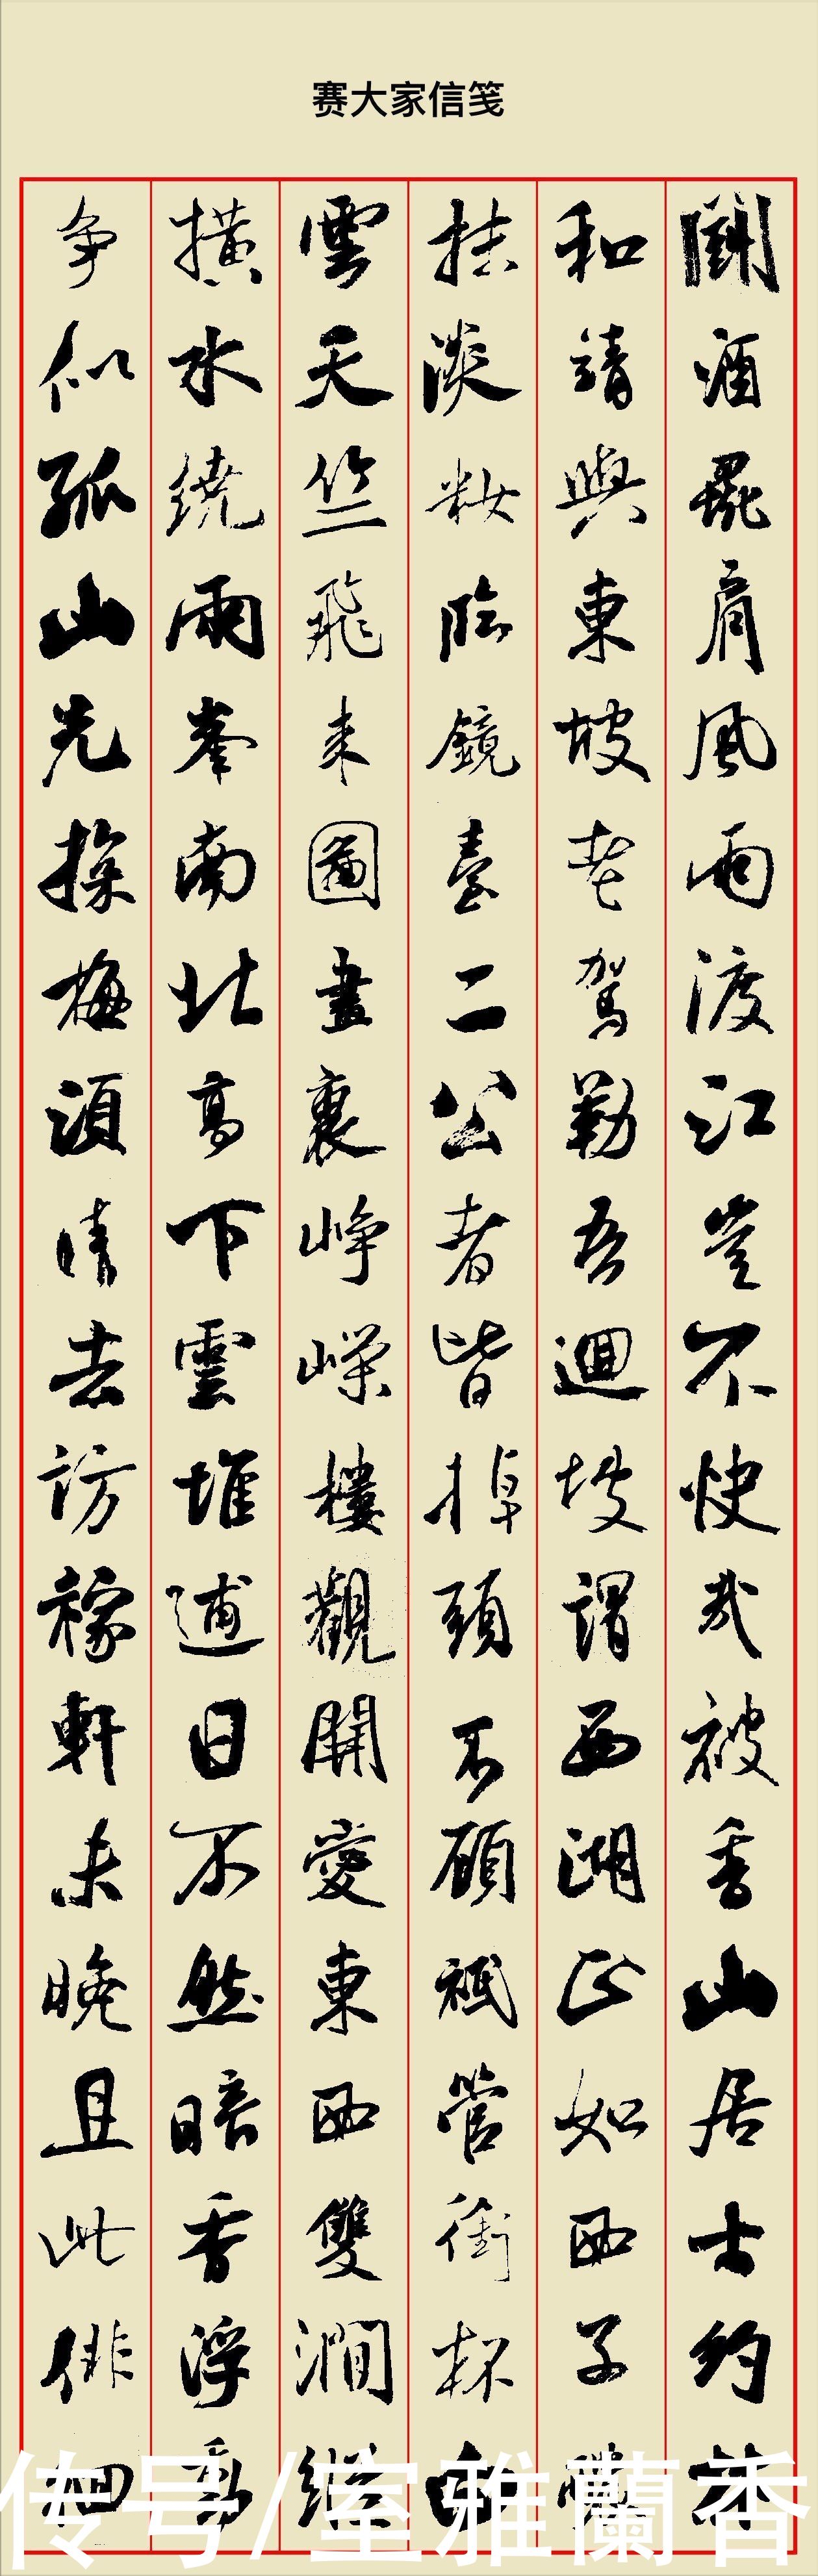 赛大家信笺
鬭酒彘肩風雨渡江豈不快哉被香山居士約林
和靖與東坡老駕勒吾迴坡謂西湖正如西子濃
抹淡粧臨鏡臺二公者皆掉頭不顧祗管銜杯白
雲天竺飛來圖畫裏崢嶸樓觀開愛東西雙澗縱
横水繞雨峯南北高下雲堆逋日不然暗香浮動
争似孤山先探梅須晴去訪稼軒未晚且此俳回
传号/室雅蘭香